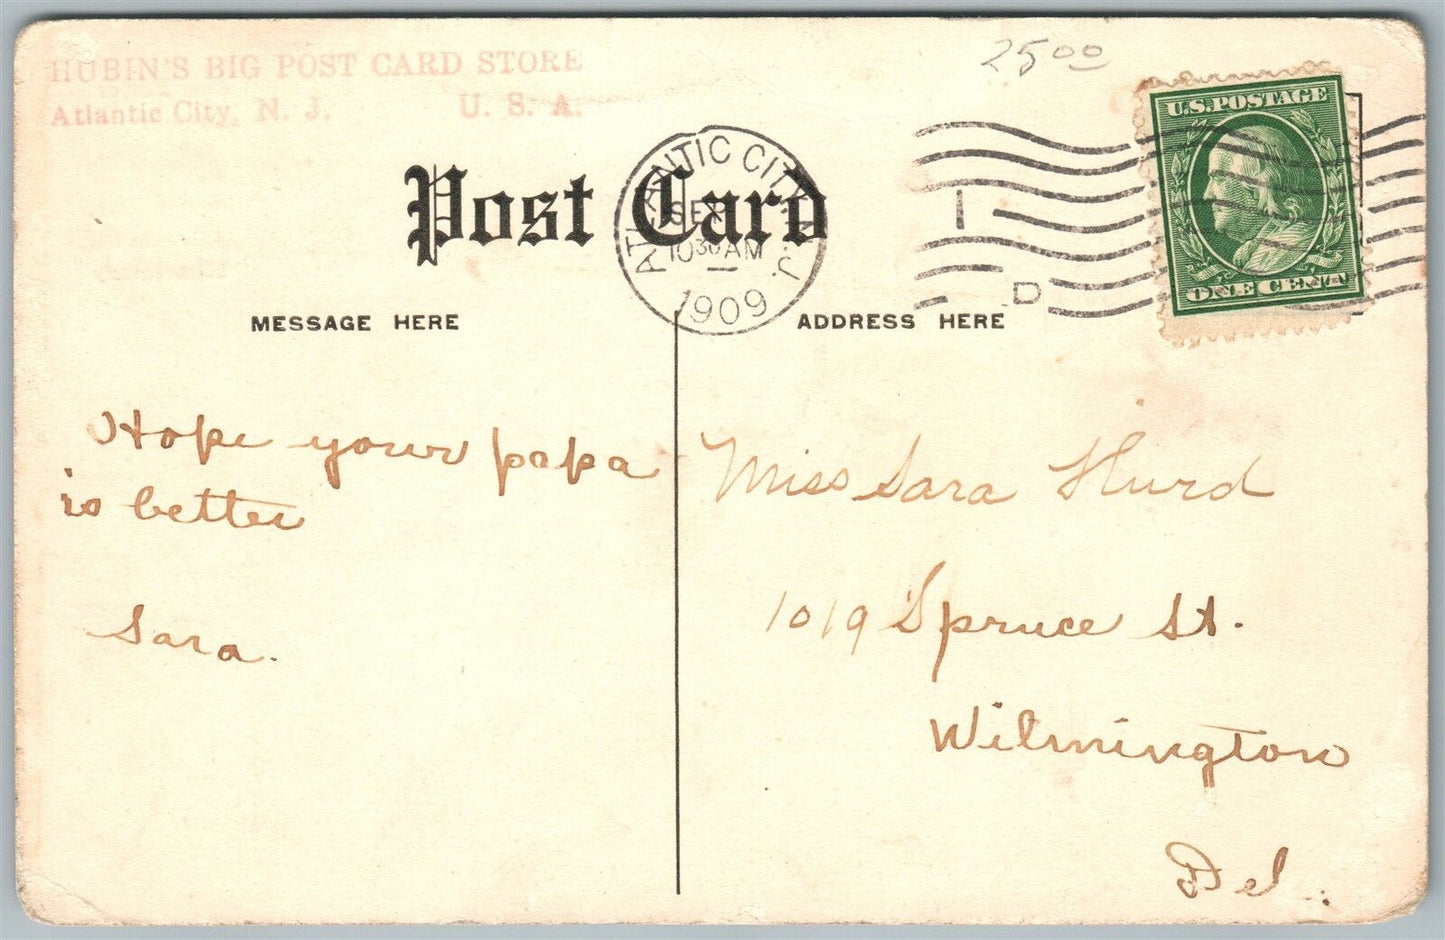 HUBIN'S BIG POST CARD STORE
Atlantic City, N. J. U. S. A.
2500
U.S. POSTAGE
ONE CENT
Post Card
ATLANTIC CITY, N.J.
SEP
1030 AM
1909
1
D
MESSAGE HERE
ADDRESS HERE
Hope your papa
is better
Sara.
Miss Sara Hurd
1019 Spruce St.
Wilmington
Del.